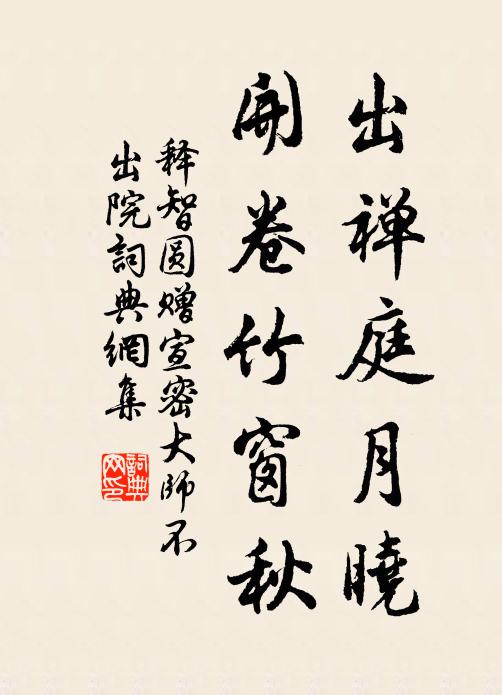 出禅庭月曉
開卷竹窗秋
释智圆赠宣密大師不
出院詞典網集
詞典网印